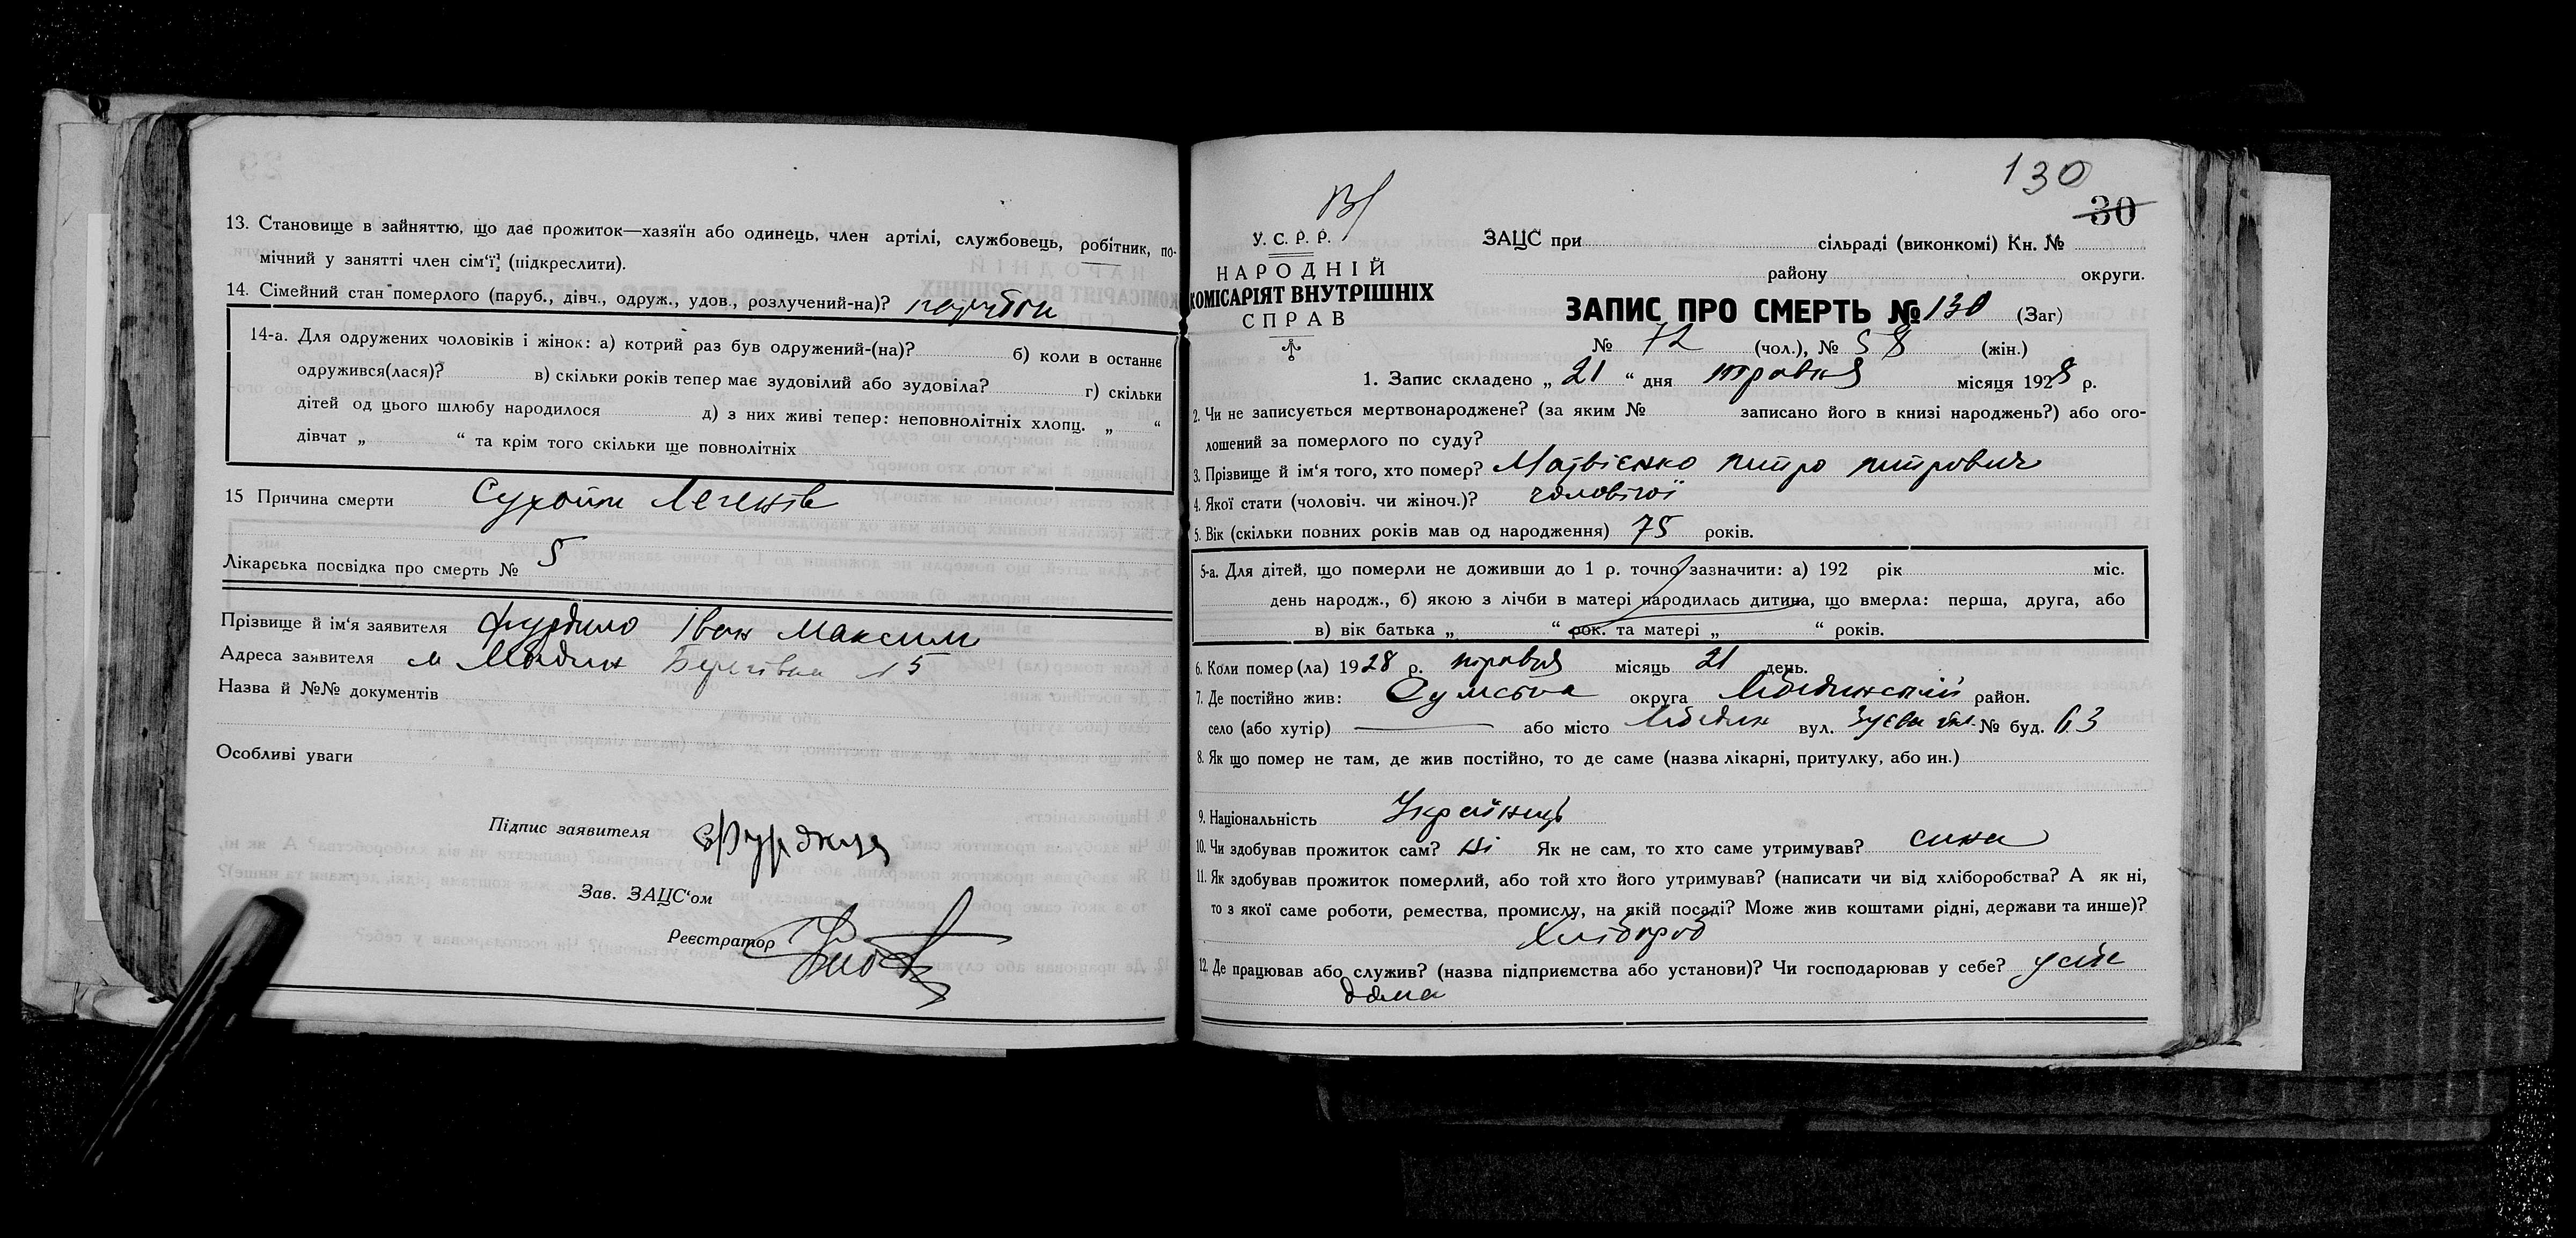 13. Становище в зайняттю, що дає прожиток—хазяїн або одинець, член артілі, службовець, робітник, по-
мічний у занятті член сім'ї; (підкреслити).
14. Сімейний стан померлого (паруб., дівч., одруж., удов., розлучений-на)?
14-а. Для одружених чоловіків і жінок: а) котрий раз був одружений-(на)? б) коли в останнє
одружився(лася)? в) скільки років тепер має зудовілий або зудовіла? г) скільки
дітей од цього шлюбу народилося д) з них живі тепер: неповнолітніх хлопц. „ “
дівчат „ “ та крім того скільки ще повнолітніх
15 Причина смерти Сухоти Легенів
Лікарська посвідка про смерть № 5
Прізвище й ім'я заявителя Іван Максим
Адреса заявителя м Лебедин 15
Назва й №№ документів
Особливі уваги
Підпис заявителя
Зав. ЗАЦС'ом
Реєстратор
130
30
У. С. Р. Р.
НАРОДНІЙ
КОМІСАРІЯТ ВНУТРІШНІХ
СПРАВ
ЗАЦС при сільраді (виконкомі) Кн. №
району округи.
ЗАПИС ПРО СМЕРТЬ № 130 (Заг)
№ 72 (чол.), № 58 (жін.)
1. Запис складено „ 21 “ дня травня місяця 1928 р.
2. Чи не записується мертвонароджене? (за яким № записано його в книзі народжень?) або ого-
лошений за померлого по суду?
3. Прізвище й ім'я того, хто помер? Матвієнко Петро Петрович
4. Якої стати (чоловіч. чи жіноч.)? чоловічої
5. Вік (скільки повних років мав од народження) 75 років.
5-а. Для дітей, що померли не доживши до 1 р. точно зазначити: а) 192 рік міс.
день народж., б) якою з лічби в матері народилась дитина, що вмерла: перша, друга, або
в) вік батька „ “ рок. та матері „ “ років.
6. Коли помер(ла) 1928 р. травня місяць 21 день.
7. Де постійно жив: Сумська округа Лебединский район.
село (або хутір) — або місто Лебедин вул. № буд. 63
8. Як що помер не там, де жив постійно, то де саме (назва лікарні, притулку, або ин.)
9. Національність Українець
10. Чи здобував прожиток сам? Ні Як не сам, то хто саме утримував? сина
11. Як здобував прожиток померлий, або той хто його утримував? (написати чи від хліборобства? А як ні,
то з якої саме роботи, ремества, промислу, на якій посаді? Може жив коштами рідні, держави та инше)?
Хлібороб
12. Де працював або служив? (назва підприємства або установи)? Чи господарював у себе? у себе
дома